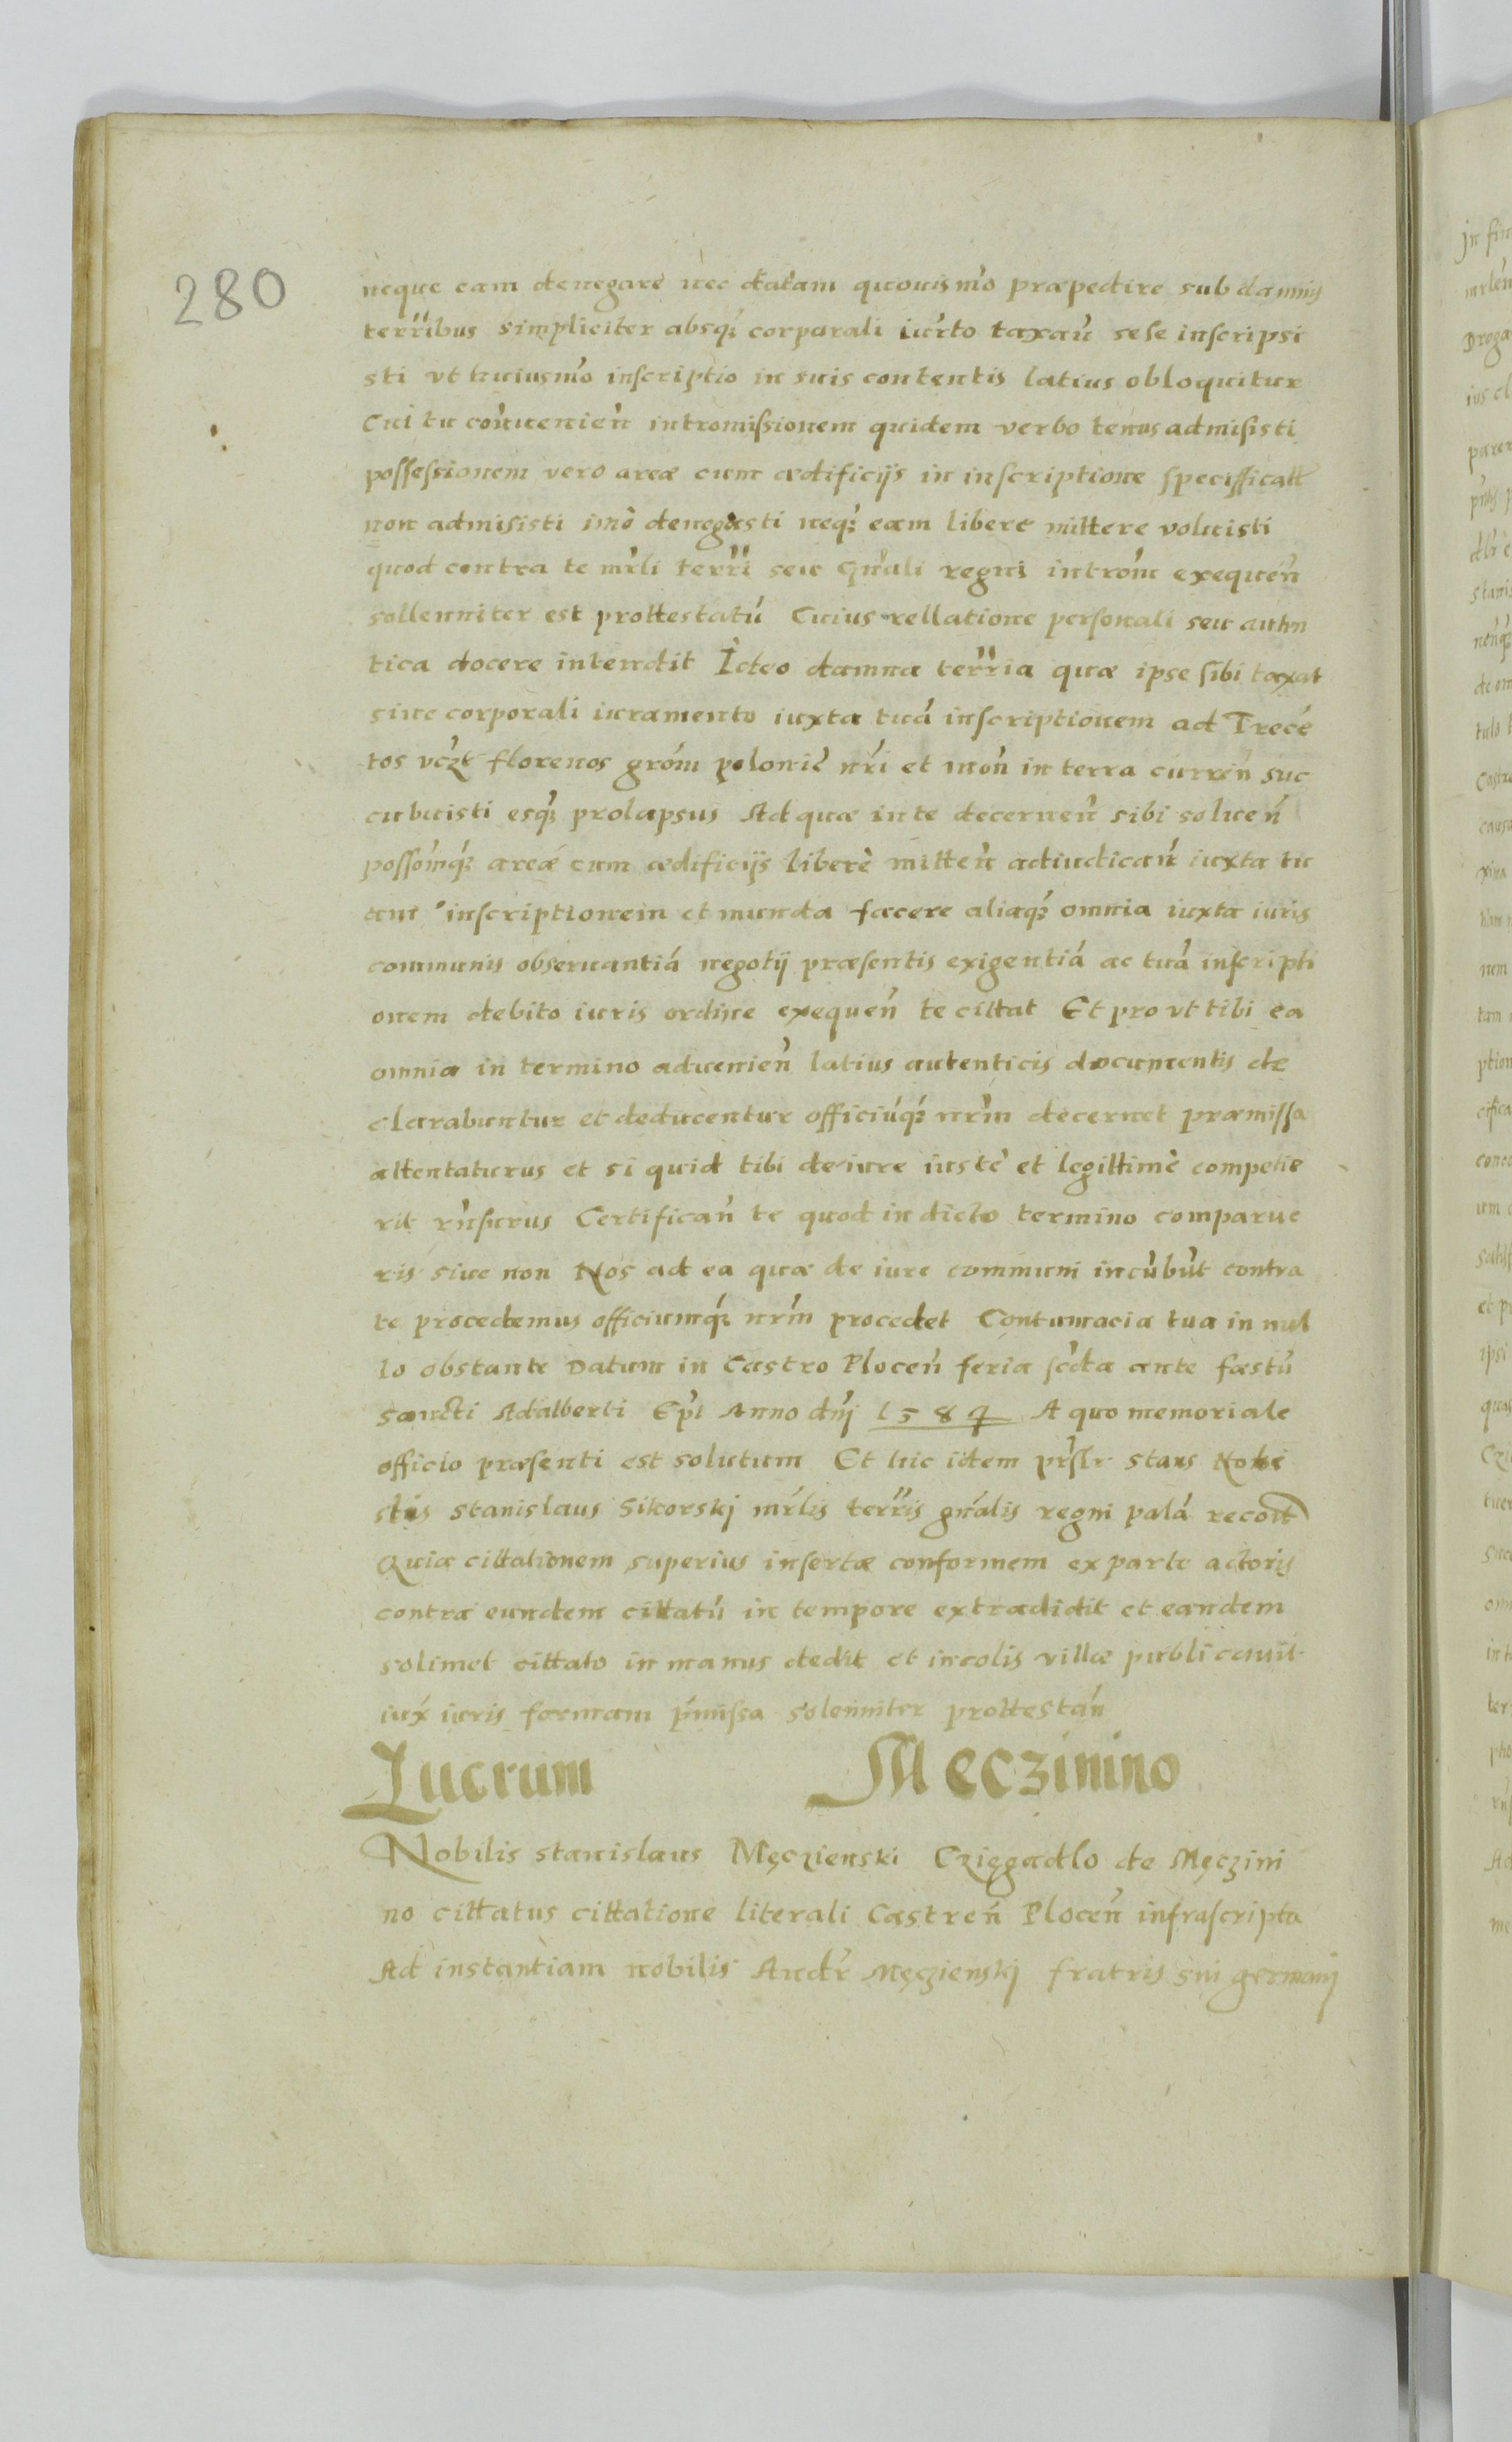 280
neque eam denegare nec datam quouismo præpedire sub damnis
terribus simpliciter absq; corporali iurto taxan sese inscripsi
sti vt huiusmo inscriptio in suis contentis latius obloquitur
Cui tu conuenien intromissionem quidem verbo tenus admisisti
possessionem vero areæ cum ædificijs in inscriptione specifficatt
non admisisti imò denegasti neq; eam libere mittere voluisti
quod contra te mrli terri seu gnali regni introm exequen
sollenniter est prottestatú Cuius rellatione personali seu authn
tica docere intendit Ideo damna terria quæ ipse sibi taxat
sine corporali iuramento iuxta tuá inscriptionem ad Trecé
tos vczt florenos gróm polonić nri et mon in terra curren suc
cubuisti esq; prolapsus Ad quæ in te decernen sibi soluen
possomq; areæ cum ædificijs liberè mitten adiudican iuxta tu
am inscriptionem et munda facere aliaq; omnia iuxta iuris
communis obseruantiá negotij præsentis exigentiá ac tuá inscripti
onem debito iuris ordine exequen te cittat Et pro vt tibi ea
omnia in termino aduenien latius autenticis documentis de
clarabuntur et deducentur officiúq; nrm decernet præmissa
attentaturus et si quid tibi de iure iustè et legittimè compettie
rit rnsurus Certifican te quod in dicto termino comparue
ris siue non Nos ad ea quæ de iure communi incubut contra
te procedemus officiumq; nrm procedet Contumacia tua in nul
lo obstante Datum in Castro Plocen feria scda ante fæstú
sancti Adalberti Epi Anno dnj 1584 A quo memoriale
officio præsenti est solutum Et hic idem prslr stans Nobi
stanislaus Sikorskj mrlis terris gnalis regni palá recont
Quia cittationem superius insertæ conformem ex parte actoris
contra eundem cittatú in tempore extradidit et eandem
solimet cittato in manus dedit et incolis villæ publicauit
iux iuris formam pmissa solenniter prottestán
Lucrum Meczinino
Nobilis stanislaus Męczienski Czięgadlo de Męczini
no cittatus cittatione literali Castren Plocen infrascripta
Ad instantiam nobilis Andr Męczienskj fratris sui germanj